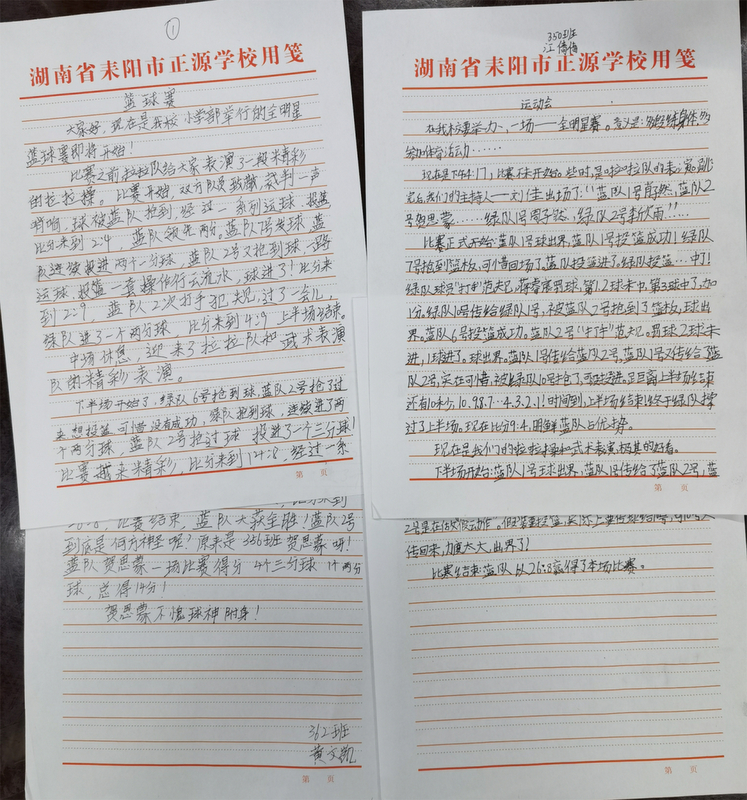 ①
湖南省耒阳市正源学校用笺
篮球赛
大家好，现在是我校小学部举行的全明星
篮球赛即将开始！
比赛之前拉拉队给大家表演了一段精彩
的拉拉操。比赛开始，双方队员就
裁判一声
哨响，球被蓝队抢到，经过一系列运球、投篮
比分来到2:4，蓝队领先两分。蓝队7号发球，蓝
队连续投进两个二分球，蓝队2号又抢到球，一路
运球、投篮一套操作行云流水，球进了！比分来
到2:9，蓝队2次打手犯规，过了一会儿，
绿队进了一个两分球，比分来到4:9上半场结束。
中场休息，迎来了拉拉队和武术表演
队的精彩表演。
下半场开始了，绿队6号抢到球，蓝队2号抢了过
去想投篮可惜没有成功，绿队抢到球，连续进了两
个两分球，蓝队2号抢过球投进了一个三分球！
比赛越来精彩，比分来到124:8，经过一系
第 页
:8，比赛结束，蓝队大获全胜！蓝队2号
到底是何方神圣呢？原来是356班贺思蒙呀！
蓝队贺思蒙一场比赛得分4个三分球1个两分
球，总得14分！
贺思蒙不愧球神附身！
362班
黄文凯
第 页
350班
江倩倩
湖南省耒阳市正源学校用笺
运动会
在我校要举办一场——全明星赛。意义是：多锻练身体，多
参加体育活动……
现在是下午4门，比赛还未开始。些时，是啦啦队的表演。跳
完后，我们的主持人——刘佳出场了！！蓝队1号肖孑然，蓝队2
号贺思蒙……绿队1号周子路、绿队2号
比赛正式开始：蓝队1号球出界，蓝队1号投篮成功！绿队
7号抢到篮板，可惜回场了。蓝队投篮进了。绿队投篮…中了！
绿队球员"打手"范规，蒋睿
罚球，第1.2球未中，第3球中了，加
1分。绿队10号传给绿队1号，被蓝队2号抢到了篮板，球出
界。蓝队6号投篮成功。蓝队2号"打手"范规。罚球2球未
进，1球进了。球出界。蓝队1号传给蓝队2号，蓝队1号又传给了蓝
队2号，实在可惜，被绿队10号抢了，
投进。足巨离上半场结束
还有10秒，10.9.8.7…4.3.2.1！时间到，上半场结束！终于绿队撑
过了上半场。现在比分9:4，明鲜蓝队占优势。
现在是我们的啦啦操和武术表演，极其的好看。
下半场开始：蓝队1号球出界，蓝队1号传给了蓝队2号，蓝
第 页
2号是在做"假动作"。但
传回来，力量太大，出界了！
比赛结束：蓝队以26:8赢得了本场比赛。
第 页